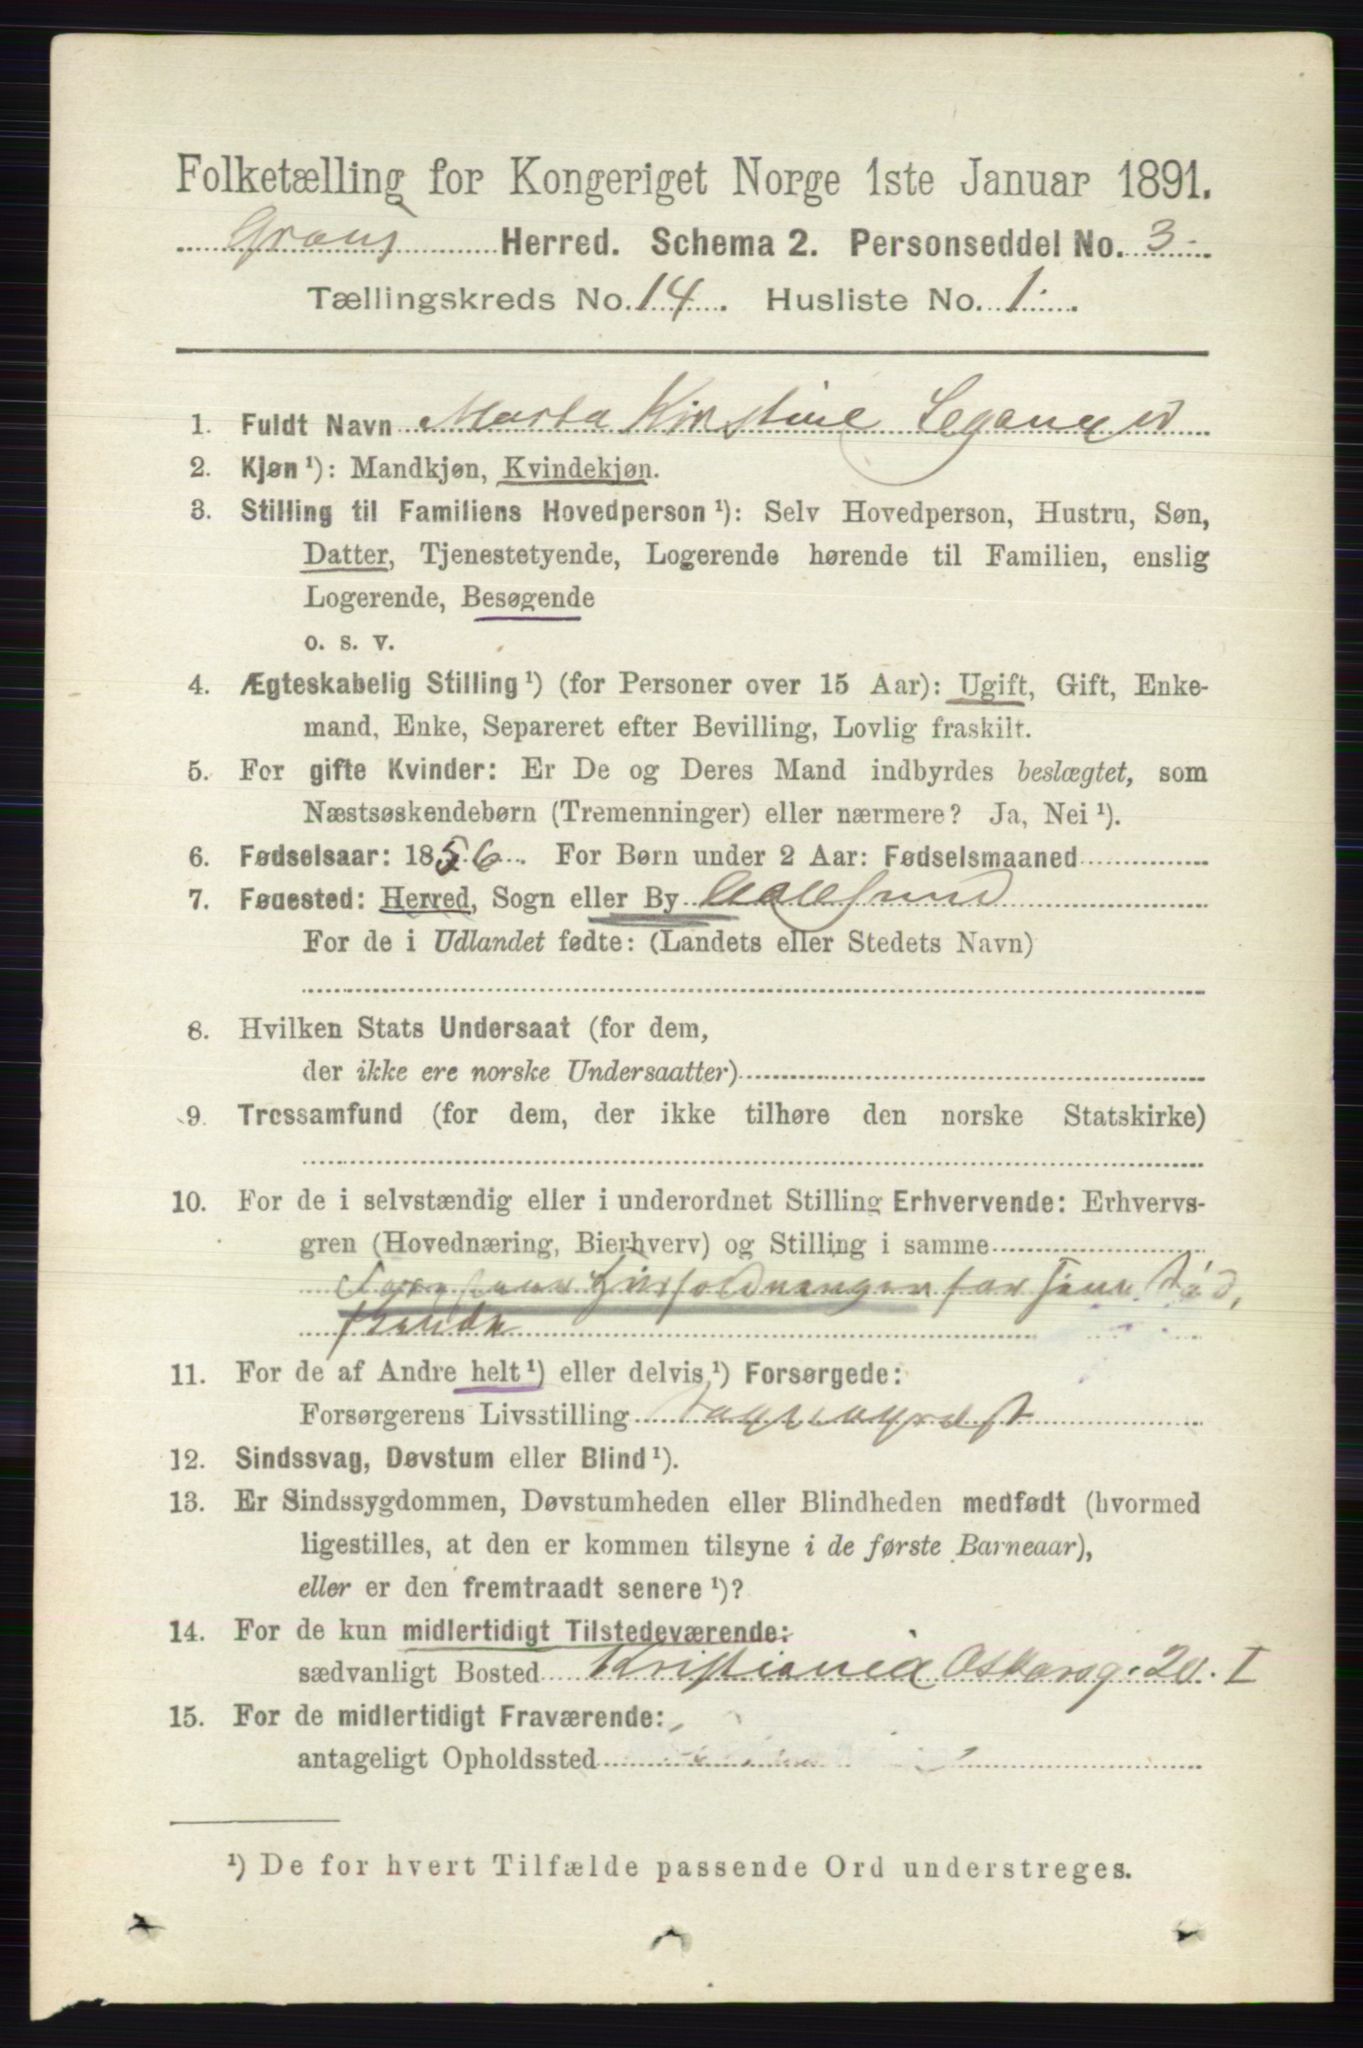 Folketælling for Kongeriget Norge 1ste Januar 1891.
Grans Herred. Schema 2. Personseddel No. 3
Tællingskreds No. 14. Husliste No. 1.
1. Fuldt Navn Marta Kirstine
2. Kjøn ¹): Mandkjøn, Kvindekjøn.
3. Stilling til Familiens Hovedperson ¹): Selv Hovedperson, Hustru, Søn,
Datter, Tjenestetyende, Logerende hørende til Familien, enslig
Logerende, Besøgende
o. s. v.
4. Ægteskabelig Stilling ¹) (for Personer over 15 Aar): Ugift, Gift, Enke-
mand, Enke, Separeret efter Bevilling, Lovlig fraskilt.
5. For gifte Kvinder: Er De og Deres Mand indbyrdes beslægtet, som
Næstsøskendebørn (Tremenninger) eller nærmere? Ja, Nei ¹).
6. Fødselsaar: 1856. For Børn under 2 Aar: Fødselsmaaned
7. Føuested: Herred, Sogn eller By Aalesund
For de i Udlandet fødte: (Landets eller Stedets Navn)
8. Hvilken Stats Undersaat (for dem,
der ikke ere norske Undersaatter)
9. Trossamfund (for dem, der ikke tilhøre den norske Statskirke)
10. For de i selvstændig eller i underordnet Stilling Erhvervende: Erhvervs-
gren (Hovednæring, Bierhverv) og Stilling i samme
Husholdningen for sine
11. For de af Andre helt ¹) eller delvis ¹) Forsørgede:
Forsørgerens Livsstilling Sogneprest
12. Sindssvag, Døvstum eller Blind ¹).
13. Er Sindssygdommen, Døvstumheden eller Blindheden medfødt (hvormed
ligestilles, at den er kommen tilsyne i de første Barneaar),
eller er den fremtraadt senere ¹)?
14. For de kun midlertidigt Tilstedeværende:
sædvanligt Bosted Kristiania Oskarsg. 20. I
15. For de midlertidigt Fraværende:
antageligt Opholdssted
¹) De for hvert Tilfælde passende Ord understreges.